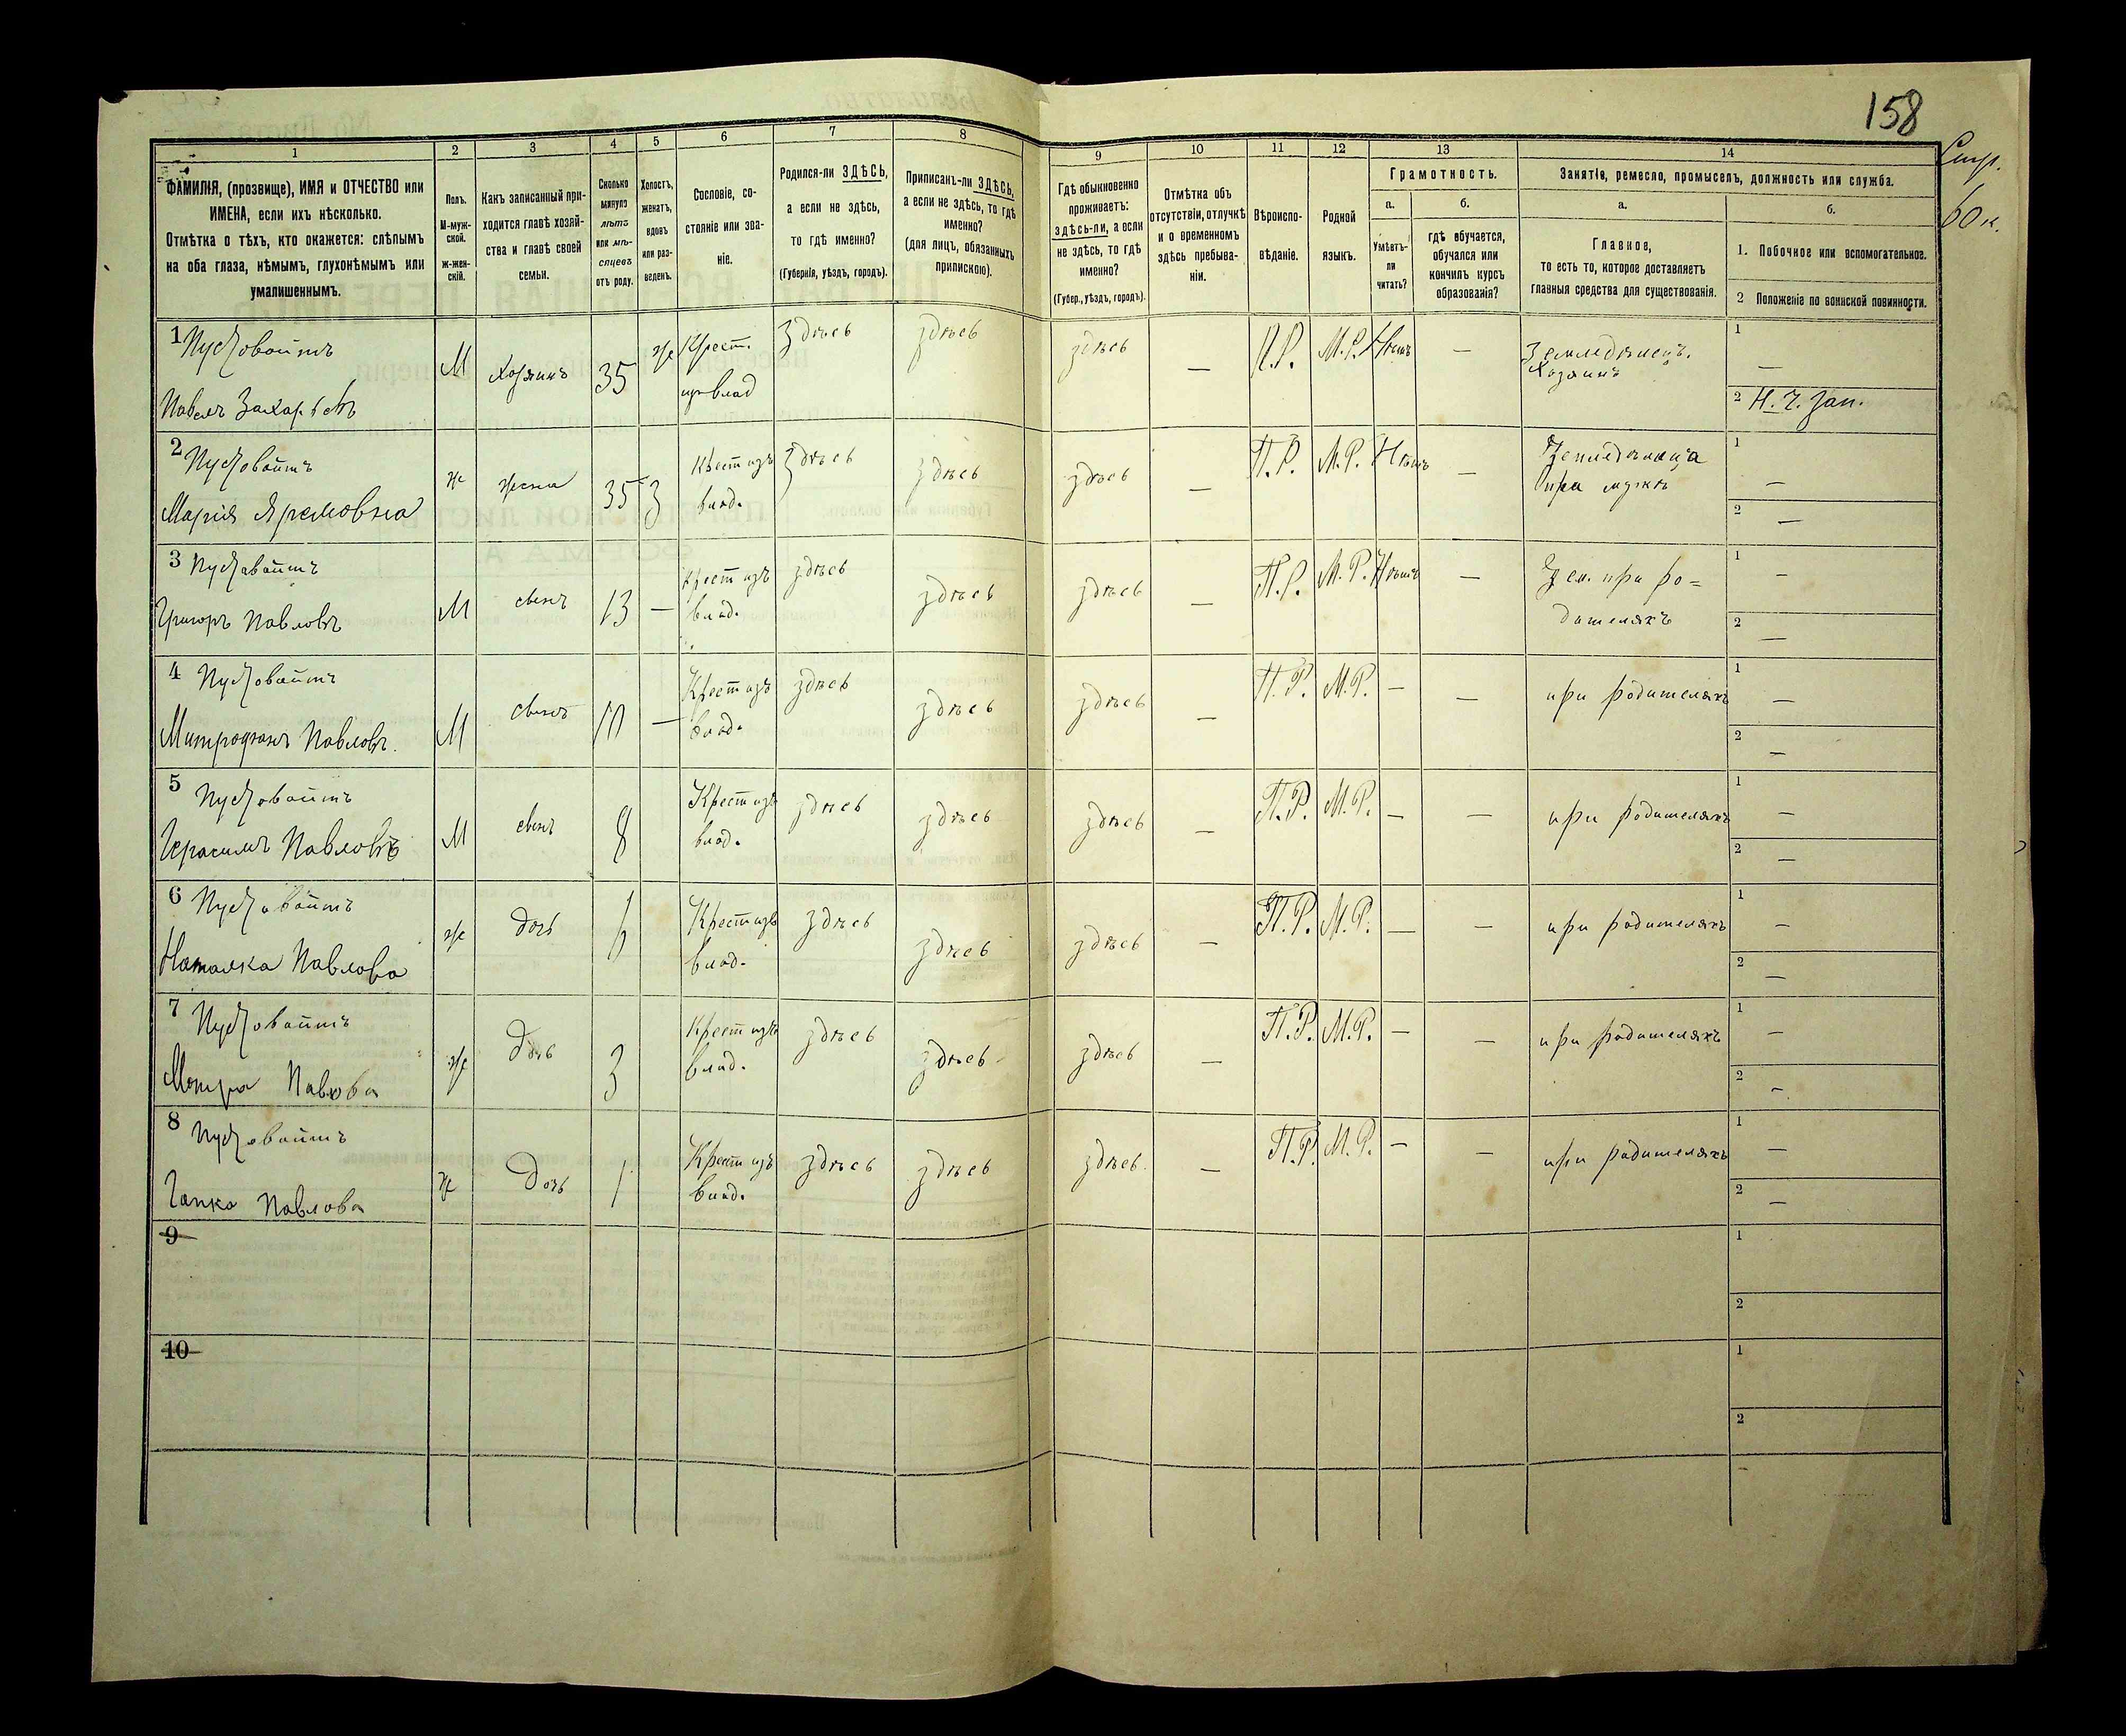 158
Стр.
60 к.
1 2 3 4 5 6 7 8 9 10 11 12 13 14
ФАМИЛІЯ, (прозвище), ИМЯ и ОТЧЕСТВО или
ИМЕНА, если ихъ нѣсколько.
Отмѣтка о тѣхъ, кто окажется: слѣпымъ
на оба глаза, нѣмымъ, глухонѣмымъ или
умалишеннымъ.
Полъ.
М-муж-
ской.
ж-жен-
скій.
Какъ записанный при-
ходится главѣ хозяй-
ства и главѣ своей
семьи.
Сколько
минуло
лѣтъ
или мѣ-
сяцевъ
отъ роду.
Холостъ,
женатъ,
вдовъ
или раз-
веденъ.
Сословіе, со-
стояніе или зва-
ніе.
Родился-ли ЗДѢСЬ,
а если не здѣсь,
то гдѣ именно?
(Губернія, уѣздъ, городъ).
Приписанъ-ли ЗДѢСЬ,
а если не здѣсь, то гдѣ
именно?
(для лицъ, обязанныхъ
припискою).
Гдѣ обыкновенно
проживаетъ:
здѣсь-ли, а если
не здѣсь, то гдѣ
именно?
(Губер., уѣздъ, городъ).
Отмѣтка объ
отсутствіи, отлучкѣ
и о временномъ
здѣсь пребыва-
ніи.
Вѣроиспо-
вѣданіе.
Родной
языкъ.
Грамотность.
а.
Умѣетъ-
ли
читать?
б.
гдѣ обучается,
обучался или
кончилъ курсъ
образованія?
Занятіе, ремесло, промыселъ, должность или служба.
а.
Главное,
то есть то, которое доставляетъ
главныя средства для существованія.
б.
1. Побочное или вспомогательное.
2 Положеніе по воинской повинности.
1 Пустовойтъ М Хозяинъ 35 же Крест. здѣсь здѣсь здѣсь — П.Р. М.Р. Нѣтъ — Земледѣлецъ. 1 —
Павелъ Захарьевъ изъ влад Хозяинъ 2 Н. Ч. Зап.
2 Пустовойтъ ж жена 35 З Крест изъ здѣсь здѣсь здѣсь — П.Р. М.Р. Нѣтъ — 1 —
Марія Яремовна влад. при мужѣ 2 —
3 Пустовойтъ М сынъ 13 — Крест изъ здѣсь здѣсь здѣсь — П.Р. М.Р. Нѣтъ — Зем. при ро= 1 —
Григоръ Павловъ влад. дителяхъ 2 —
4 Пустовойтъ М сынъ 10 — Крест изъ здѣсь здѣсь здѣсь — П.Р. М.Р. — — при родителяхъ 1 —
Митрофанъ Павловъ. влад. 2 —
5 Пустовойтъ М сынъ 8 Крест изъ здѣсь здѣсь здѣсь — П.Р. М.Р. — — при родителяхъ 1 —
Герасимъ Павловъ влад. 2 —
6 Пустовойтъ ж дочь 6 Крест изъ здѣсь здѣсь здѣсь — П.Р. М.Р. — — при родителяхъ 1 —
Наталка Павлова влад. 2 —
7 Пустовойтъ ж Дочь 3 Крест изъ здѣсь здѣсь здѣсь — П.Р. М.Р. — — при родителяхъ 1 —
Мотра Павлова влад. 2 —
8 Пустовойтъ ж Дочь 1 Крест изъ здѣсь здѣсь здѣсь — П.Р. М.Р. — — при родителяхъ 1 —
Гапка Павлова влад. 2 —
9 1
2
10 1
2